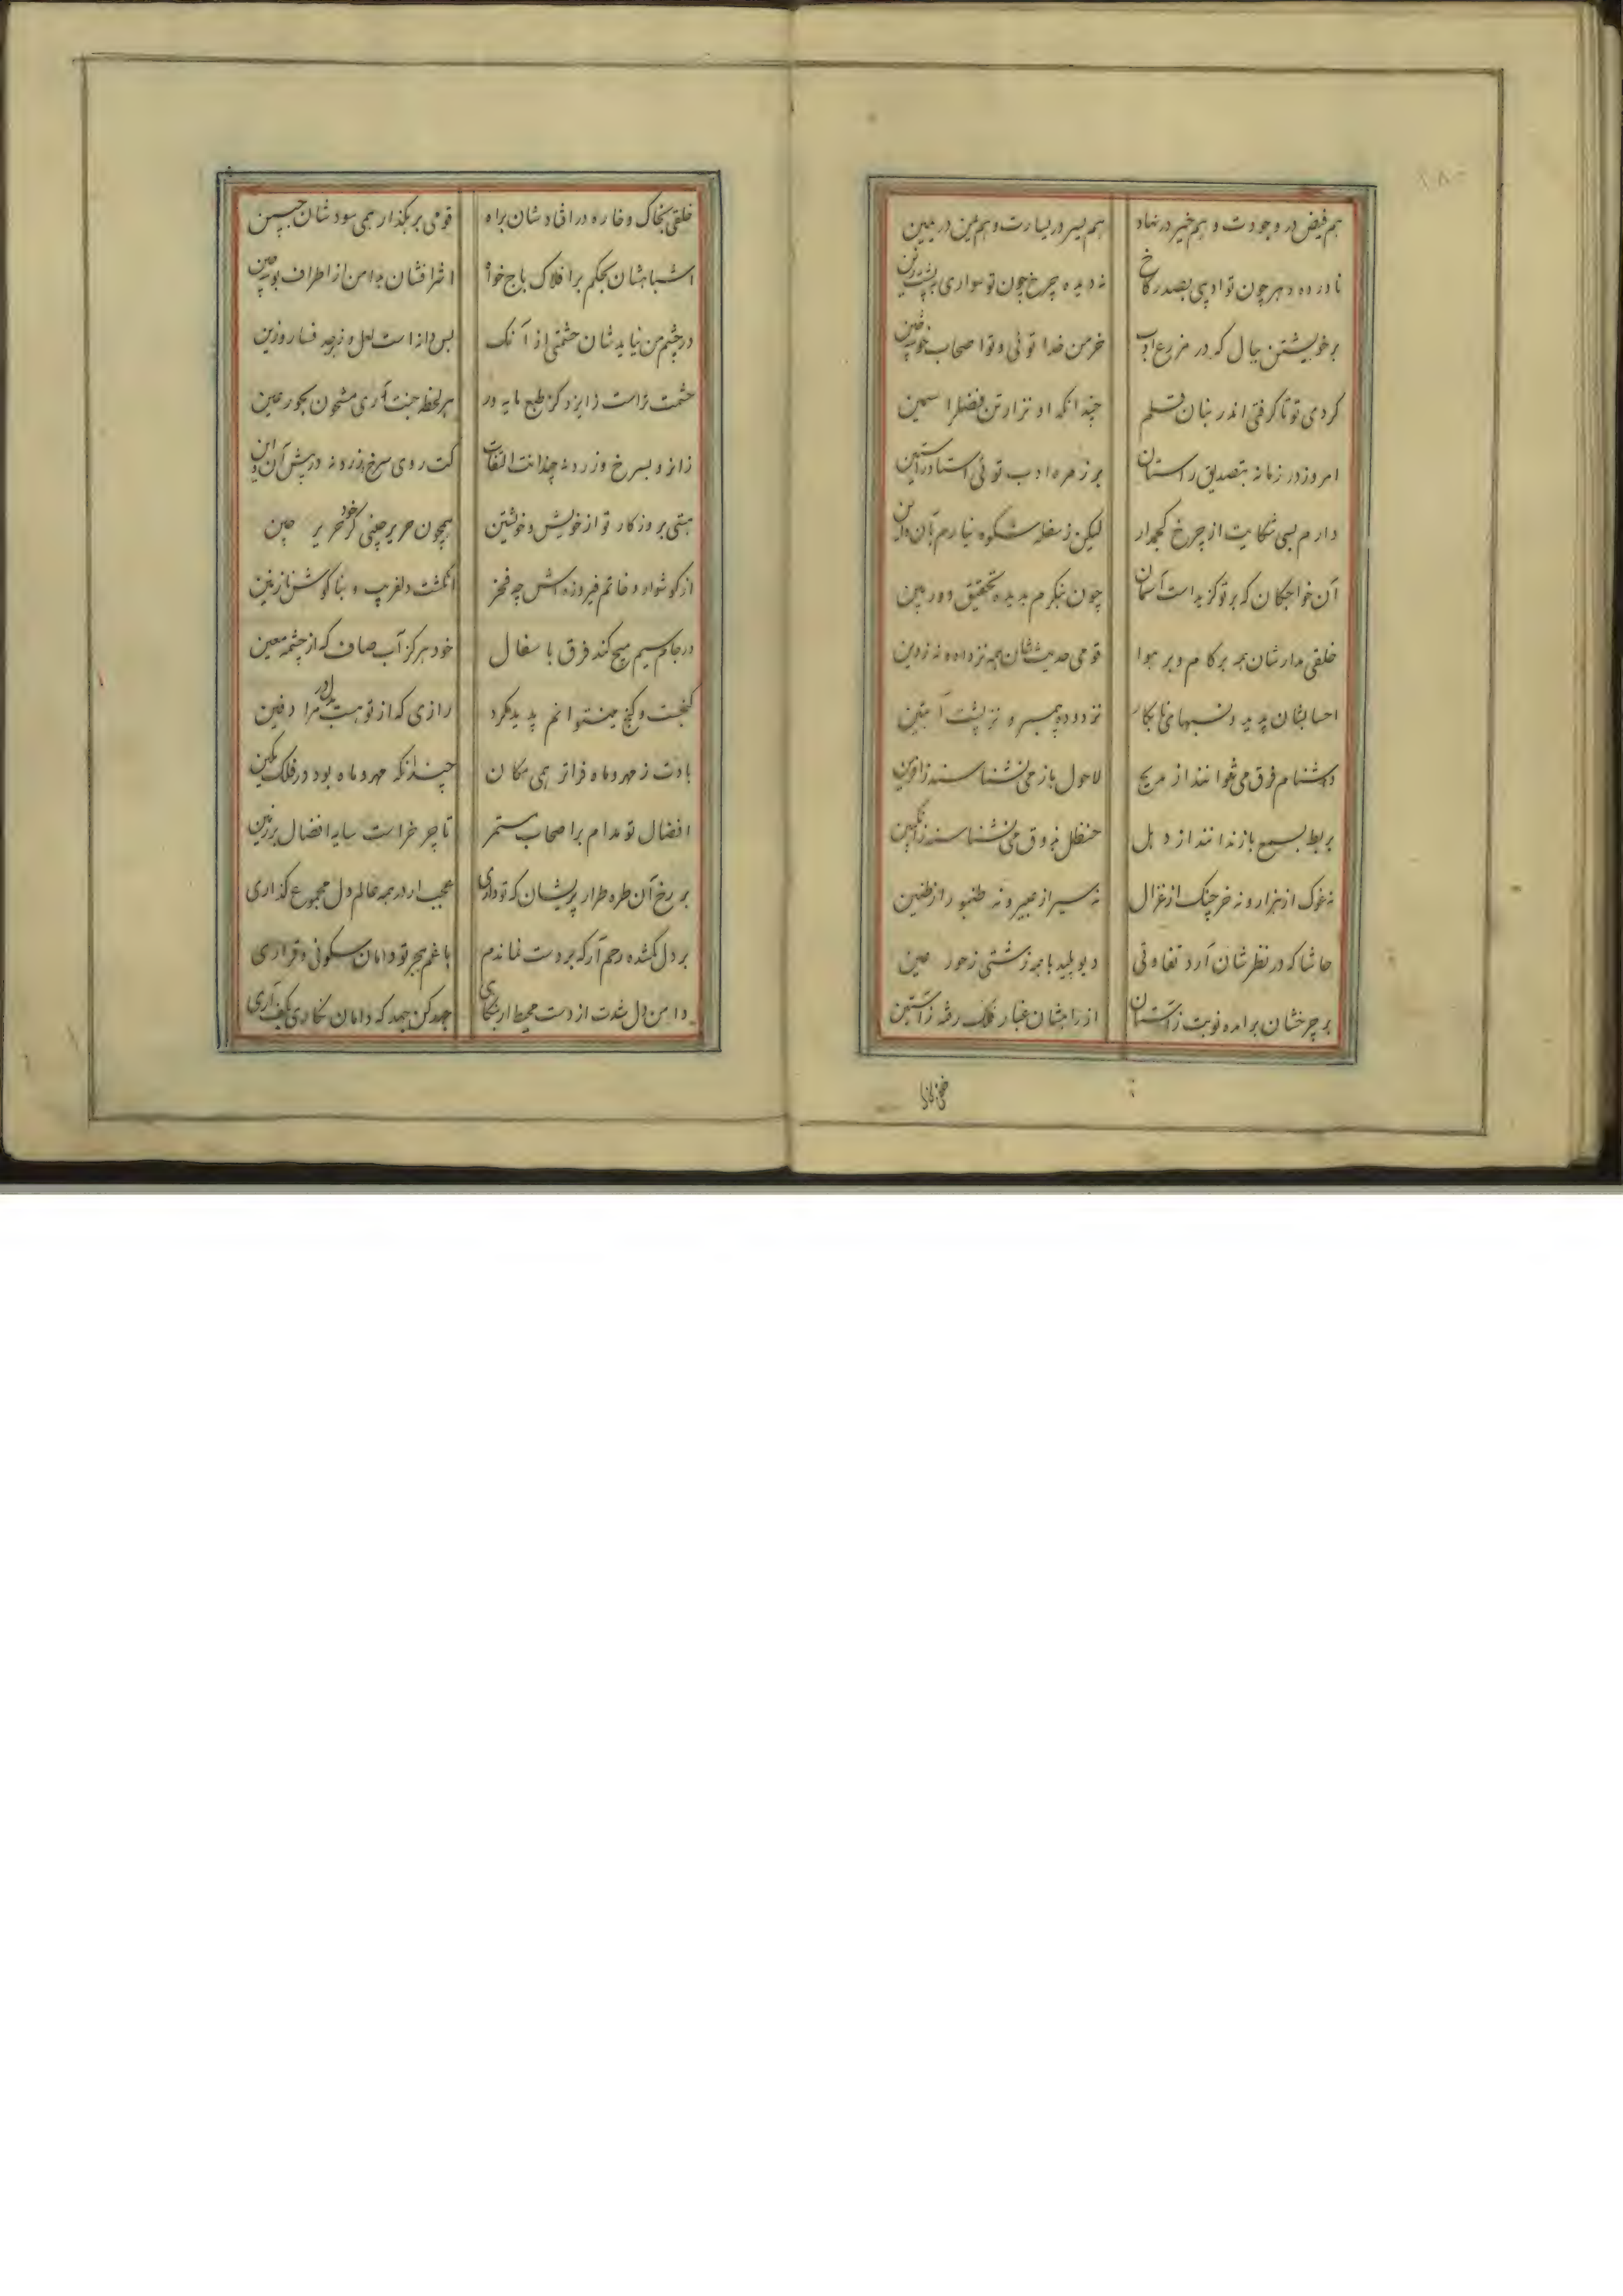 هم فیض در وجودت و هم خیر در نهاد هم یسر در یسارت و هم یمن در یمین
ناورده دهر چون تو ادیبی بصدر کاخ ندیده چرخ چون تو سواری به پشت زین
بر خویشتن ببال که در مزرع ادب خرمن خدا توئی و تو اصحاب خوشه چین
کردی تو تا گرفتی اندر بنان قلم چندانکه او نزار تن فضل را سمین
امروز در زمانه بتصدیق راستان بر زمره ادب توئی استاد راستین
دارم بسی شکایت از چرخ کجمدار لیکن ز سفله شکوه نیارم بآن و این
آن خواجگان که بر تو گزیده است آسمان چون بنگرم بدیده تحقیق دوربین
خلقی مدارشان همه بر کام و بر هوا قومی حدیثشان همه نز داد و نه ز دین
احسابشان پدید و نسبهای نابکار نز دوده پیمبر و نز پشت آبتین
دشنام فرق می نتوانند از مدیح لاحول باز می نشناسند ز آفرین
بربط بسمع باز ندانند از دهل حنظل بذوق می نشناسند ز انگبین
نه غوک از هزار و نه خرچنگ از غزال نه سیر از عبیر و نه طنبور از طنین
حاشا که در نظرشان آرد تفاوتی دیو پلید با همه زشتی ز حور عین
بر چرخشان برآمده نوبت ز آستان از راهشان غبار فلک رفته ز آستین
خلقی بخاک و خاره در افتادشان براه قومی بر بگذار همی سودشان جبین
اشباهشان بحکم بر افلاک باج خواه اشرافشان بدامن از اطراف بوسه چین
در چشم من نیایدشان حشمتی از آنک بس دانه است لعل و
حشمت تراست ز ایزد کز طبع مایه ور هر لحظه جنت آری مشحون بحور عین
زانرو بسرخ و زرد نه چندانت التفات کت روی سرخ و زرد نه در پیش آن و این
هستی بروزگار تو از خویش و خویشتن همچون حریر چینی کز خود حریر چین
از گوشوار و خاتم فیروزه اش چه فخر انگشت دلفریب و بناگوش نازنین
در جام سیم هیچ کند فرق با سفال خود هرگز آب صاف که از چشمه معین
گنجست و گنج مینتوانم پدید کرد رازی که از تو هست مرا در دل دفین
بادت ز مهر و ماه فراتر همی مکان چندانکه مهر و ماه بود در فلک مکین
افضال تو مدام بر اصحاب مستمر تا چتر خور است سایه افضال بر زمین
بر رخ آن طره طرار پریشان که تو داری عجب ار در همه عالم دل مجموع گذاری
بر دل گمشده رحم آر که بر دست نماندم با غم هجر تو دامان سکونی و قراری
دامن دل شدت از دست محیط ار بتکاپوی جهد کن جهد که دامان نگاری بکف آری